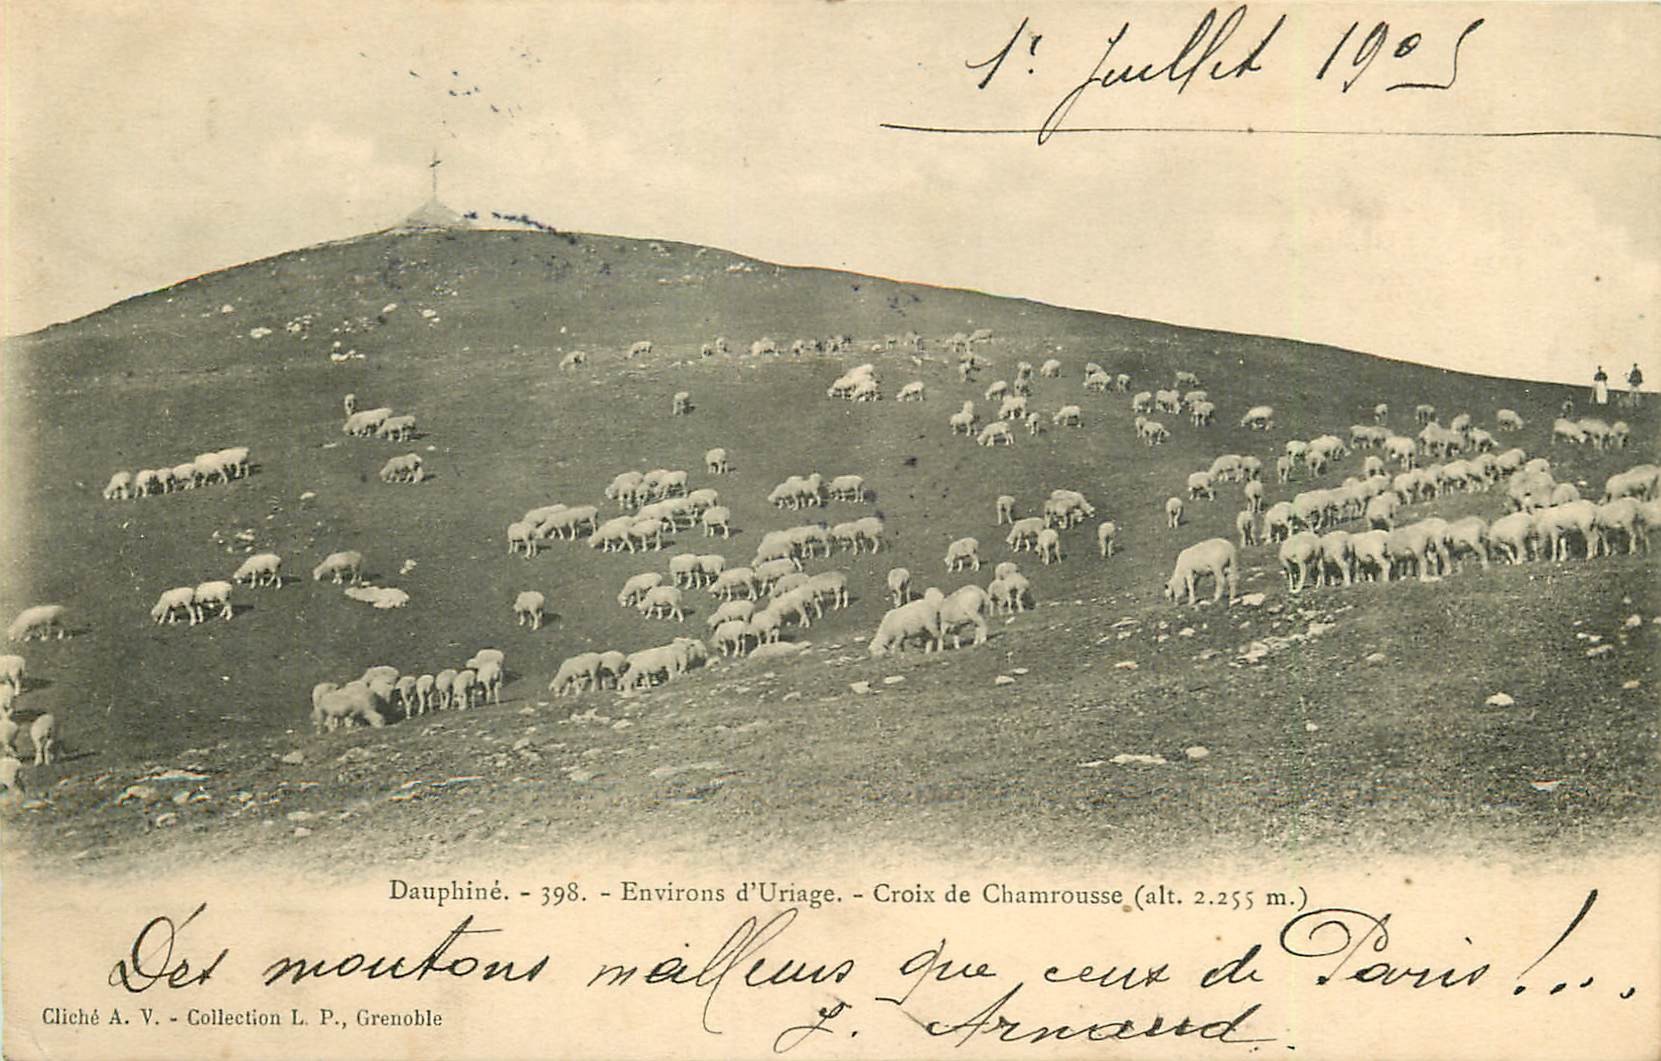 1er Juillet 1905
Dauphiné. - 398. - Environs d'Uriage. - Croix de Chamrousse (alt. 2.255 m.)
Des moutons meilleurs que ceux de Paris !...
J. Arnaud.
Cliché A. V. - Collection L. P., Grenoble